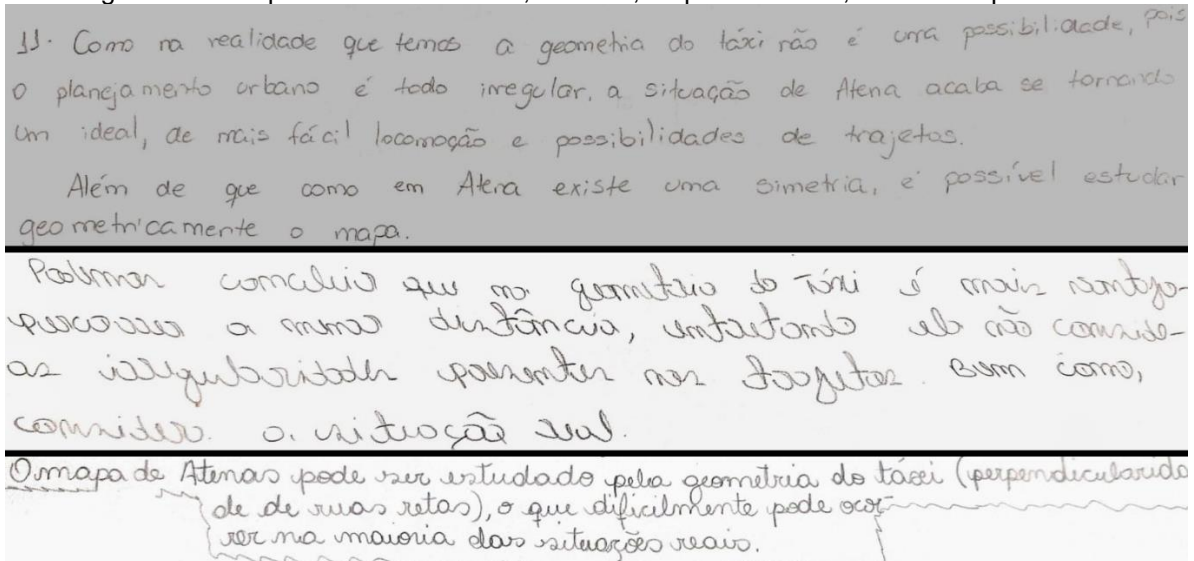 11. Como na realidade que temos a geometria do táxi não é uma possibilidade, pois
o planejamento urbano é todo irregular, a situação de Atena acaba se tornando
um ideal, de mais fácil locomoção e possibilidades de trajetos.
Além de que como em Atena existe uma simetria, é possível estudar
geometricamente o mapa.
Podemos concluir que na geometria do Táxi é mais vantajo-
percorrer a menor distância, entretanto ela não conside-
as irregularidades presentes nos trajetos. Bem como,
considera a situação real.
O mapa de Atenas pode ser estudado pela geometria do táxi (perpendicularida
de de ruas retas), o que dificilmente pode ocor-
rer na maioria das situações reais.